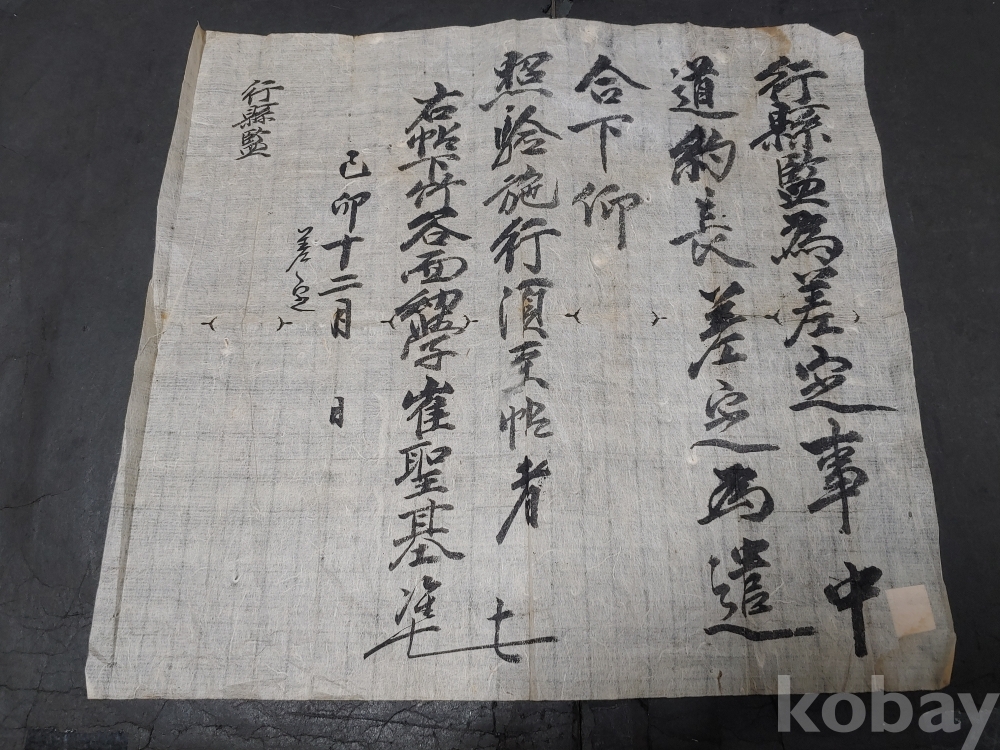 行縣監爲差定事中
道約長差定爲遣
合下仰
照驗施行須至帖者
右帖下谷面幼學崔聖基準
己卯十二月 日
差定
行縣監
kobay